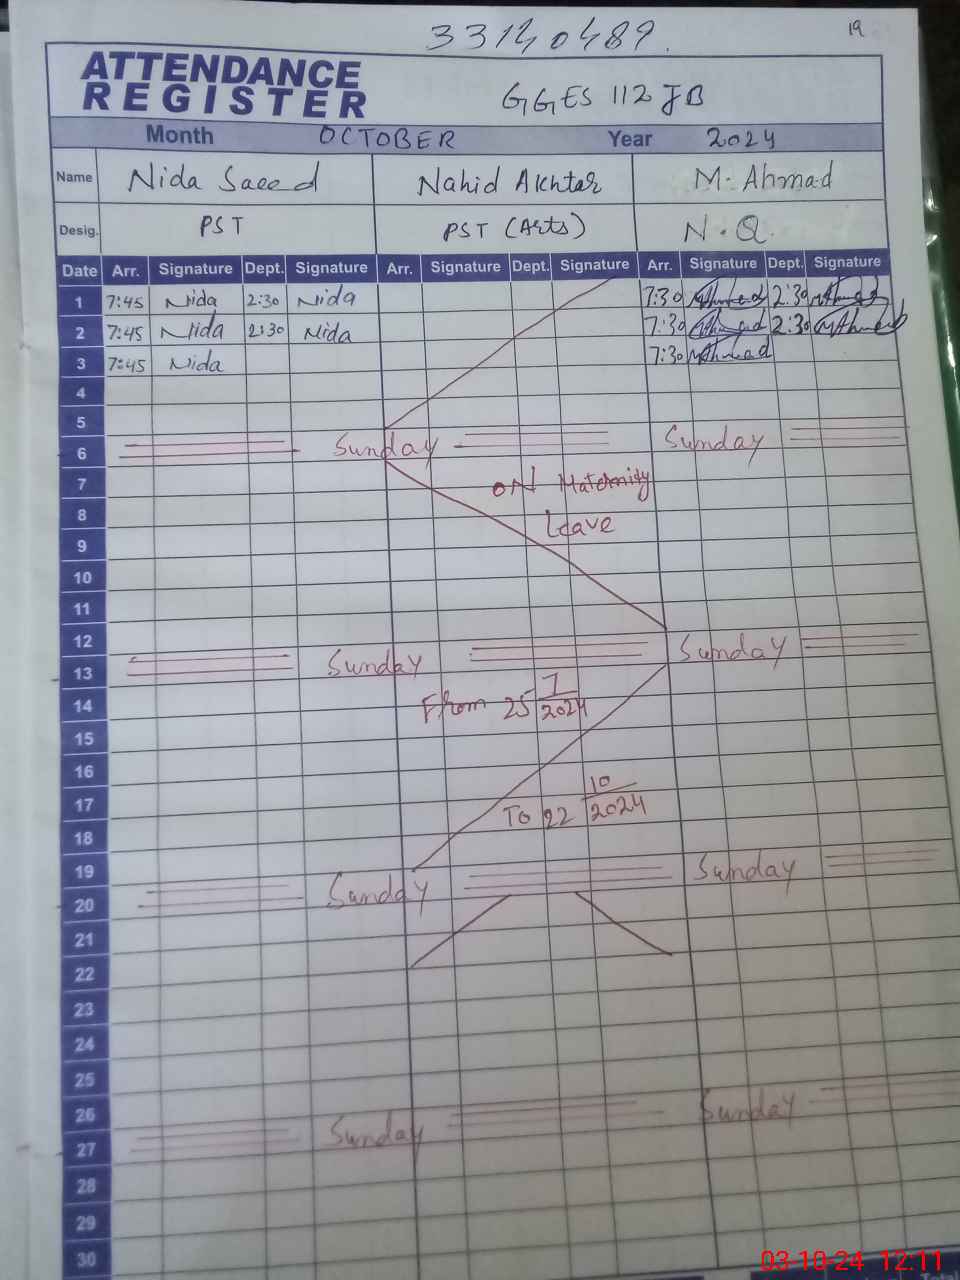 33140489.
19
ATTENDANCE
REGISTER
GGES 112 JB
Month OCTOBER Year 2024
Name Nida Saeed Nahid Akhtar M. Ahmad
Desig. PST PST (Arts) N.Q.
Date Arr. Signature Dept. Signature Arr. Signature Dept. Signature Arr. Signature Dept. Signature
1 7:45 Nida 2:30 Nida 7:30 MAhmad 2:30 MAhmad
2 7:45 Nida 2:30 Nida 7:30 MAhmad 2:30 MAhmad
3 7:45 Nida 7:30 MAhmad
4
5
6 Sunday Sunday
7 on Maternity
8 Leave
9
10
11
12
13 Sunday Sunday
14 From 25 7/2024
15
16
17 To 22 10/2024
18
19
20 Sunday Sunday
21
22
23
24
25
26
27 Sunday Sunday
28
29
30
Total
03-10-24 12:11